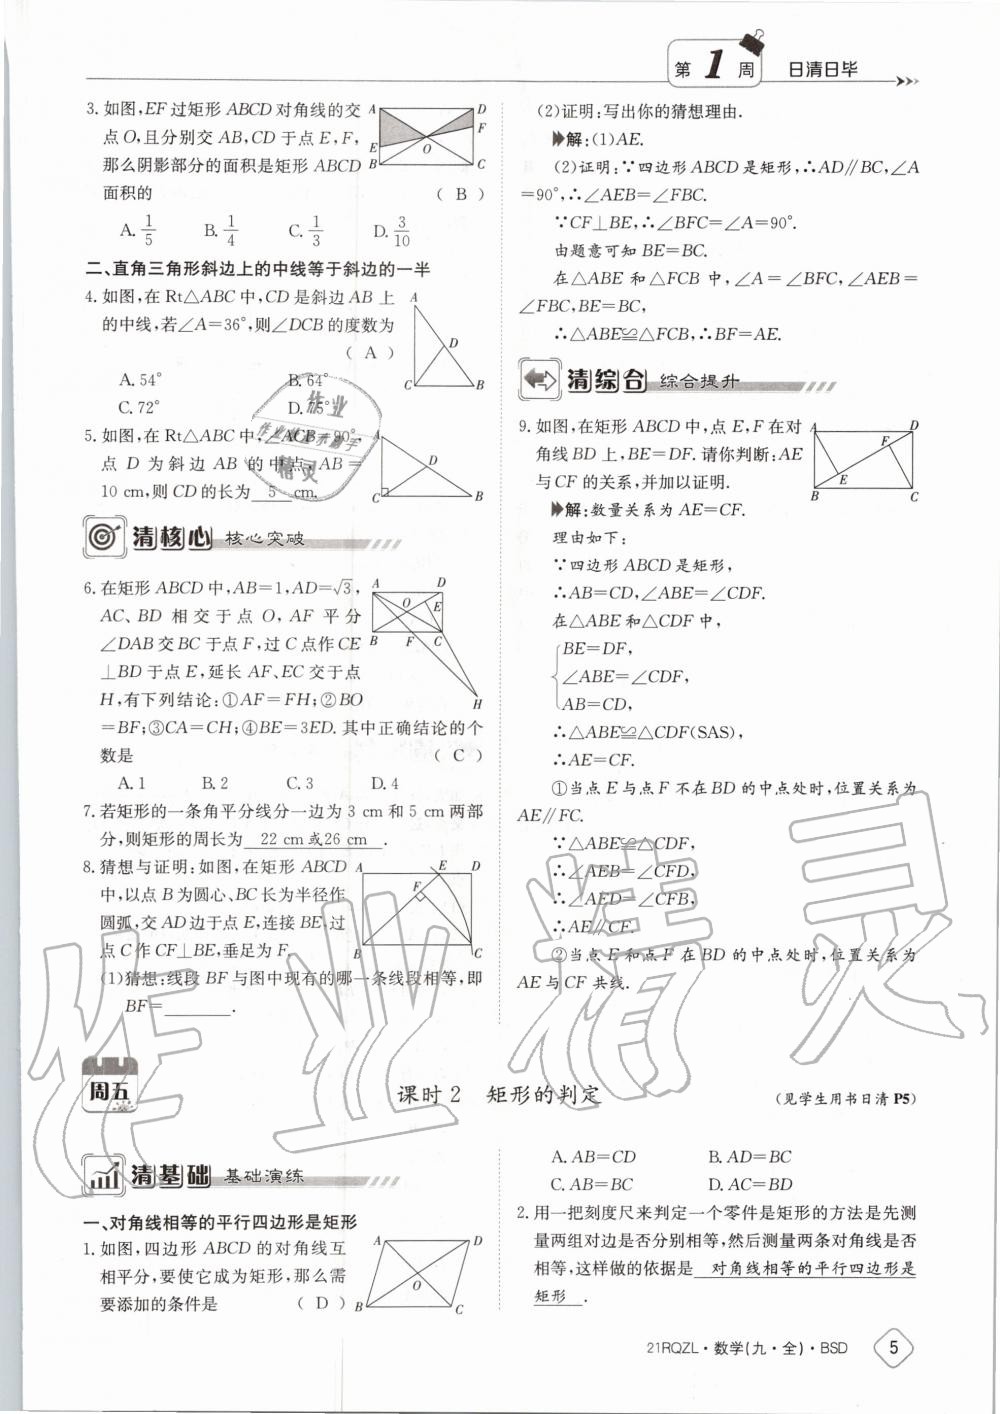 第1周 日清日毕
3. 如图,EF过矩形ABCD对角线的交
点O,且分别交AB,CD于点E,F,
那么阴影部分的面积是矩形ABCD
面积的 ( B )
A. 1/5 B. 1/4 C. 1/3 D. 3/10
A D F E O B C
二、直角三角形斜边上的中线等于斜边的一半
4. 如图,在Rt△ABC中,CD是斜边AB上
的中线,若∠A=36°,则∠DCB的度数为
( A )
A. 54° B. 64°
C. 72° D. 75°
A D C B
5. 如图,在Rt△ABC中,∠ACB=90°,
点D为斜边AB的中点,AB=
10 cm,则CD的长为 5 cm.
A D C B
清核心 核心突破
6. 在矩形ABCD中,AB=1,AD=√3,
AC、BD相交于点O,AF平分
∠DAB交BC于点F,过C点作CE
⊥BD于点E,延长AF、EC交于点
H,有下列结论:①AF=FH;②BO
=BF;③CA=CH;④BE=3ED.其中正确结论的个
数是 ( C )
A. 1 B. 2 C. 3 D. 4
A D O E B F C H
7. 若矩形的一条角平分线分一边为3 cm和5 cm两部
分,则矩形的周长为 22 cm或26 cm .
8. 猜想与证明:如图,在矩形ABCD
中,以点B为圆心、BC长为半径作
圆弧,交AD边于点E,连接BE,过
点C作CF⊥BE,垂足为F.
(1)猜想:线段BF与图中现有的哪一条线段相等,即
BF=________.
A E D F B C
(2)证明:写出你的猜想理由.
解:(1)AE.
(2)证明:∵四边形ABCD是矩形,∴AD∥BC,∠A
=90°,∴∠AEB=∠FBC.
∵CF⊥BE,∴∠BFC=∠A=90°.
由题意可知BE=BC.
在△ABE和△FCB中,∠A=∠BFC,∠AEB=
∠FBC,BE=BC,
∴△ABE≌△FCB,∴BF=AE.
清综合 综合提升
9. 如图,在矩形ABCD中,点E,F在对
角线BD上,BE=DF.请你判断:AE
与CF的关系,并加以证明.
A D F E B C
解:数量关系为AE=CF.
理由如下:
∵四边形ABCD是矩形,
∴AB=CD,∠ABE=∠CDF.
在△ABE和△CDF中,
BE=DF,
∠ABE=∠CDF,
AB=CD,
∴△ABE≌△CDF(SAS),
∴AE=CF.
①当点E与点F不在BD的中点处时,位置关系为
AE∥FC.
∵△ABE≌△CDF,
∴∠AEB=∠CFD,
∴∠AED=∠CFB,
∴AE∥CF.
②当点E和点F在BD的中点处时,位置关系为
AE与CF共线.
周五
课时2 矩形的判定 (见学生用书日清P5)
清基础 基础演练
一、对角线相等的平行四边形是矩形
1. 如图,四边形ABCD的对角线互
相平分,要使它成为矩形,那么需
要添加的条件是 ( D )
A D O B C
A. AB=CD B. AD=BC
C. AB=BC D. AC=BD
2. 用一把刻度尺来判定一个零件是矩形的方法是先测
量两组对边是否分别相等,然后测量两条对角线是否
相等,这样做的依据是 对角线相等的平行四边形是
矩形 .
21RQZL·数学(九·全)·BSD 5
作业精灵